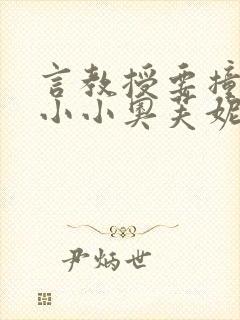 言教授要撞
小小奥芙妮
尹炳世